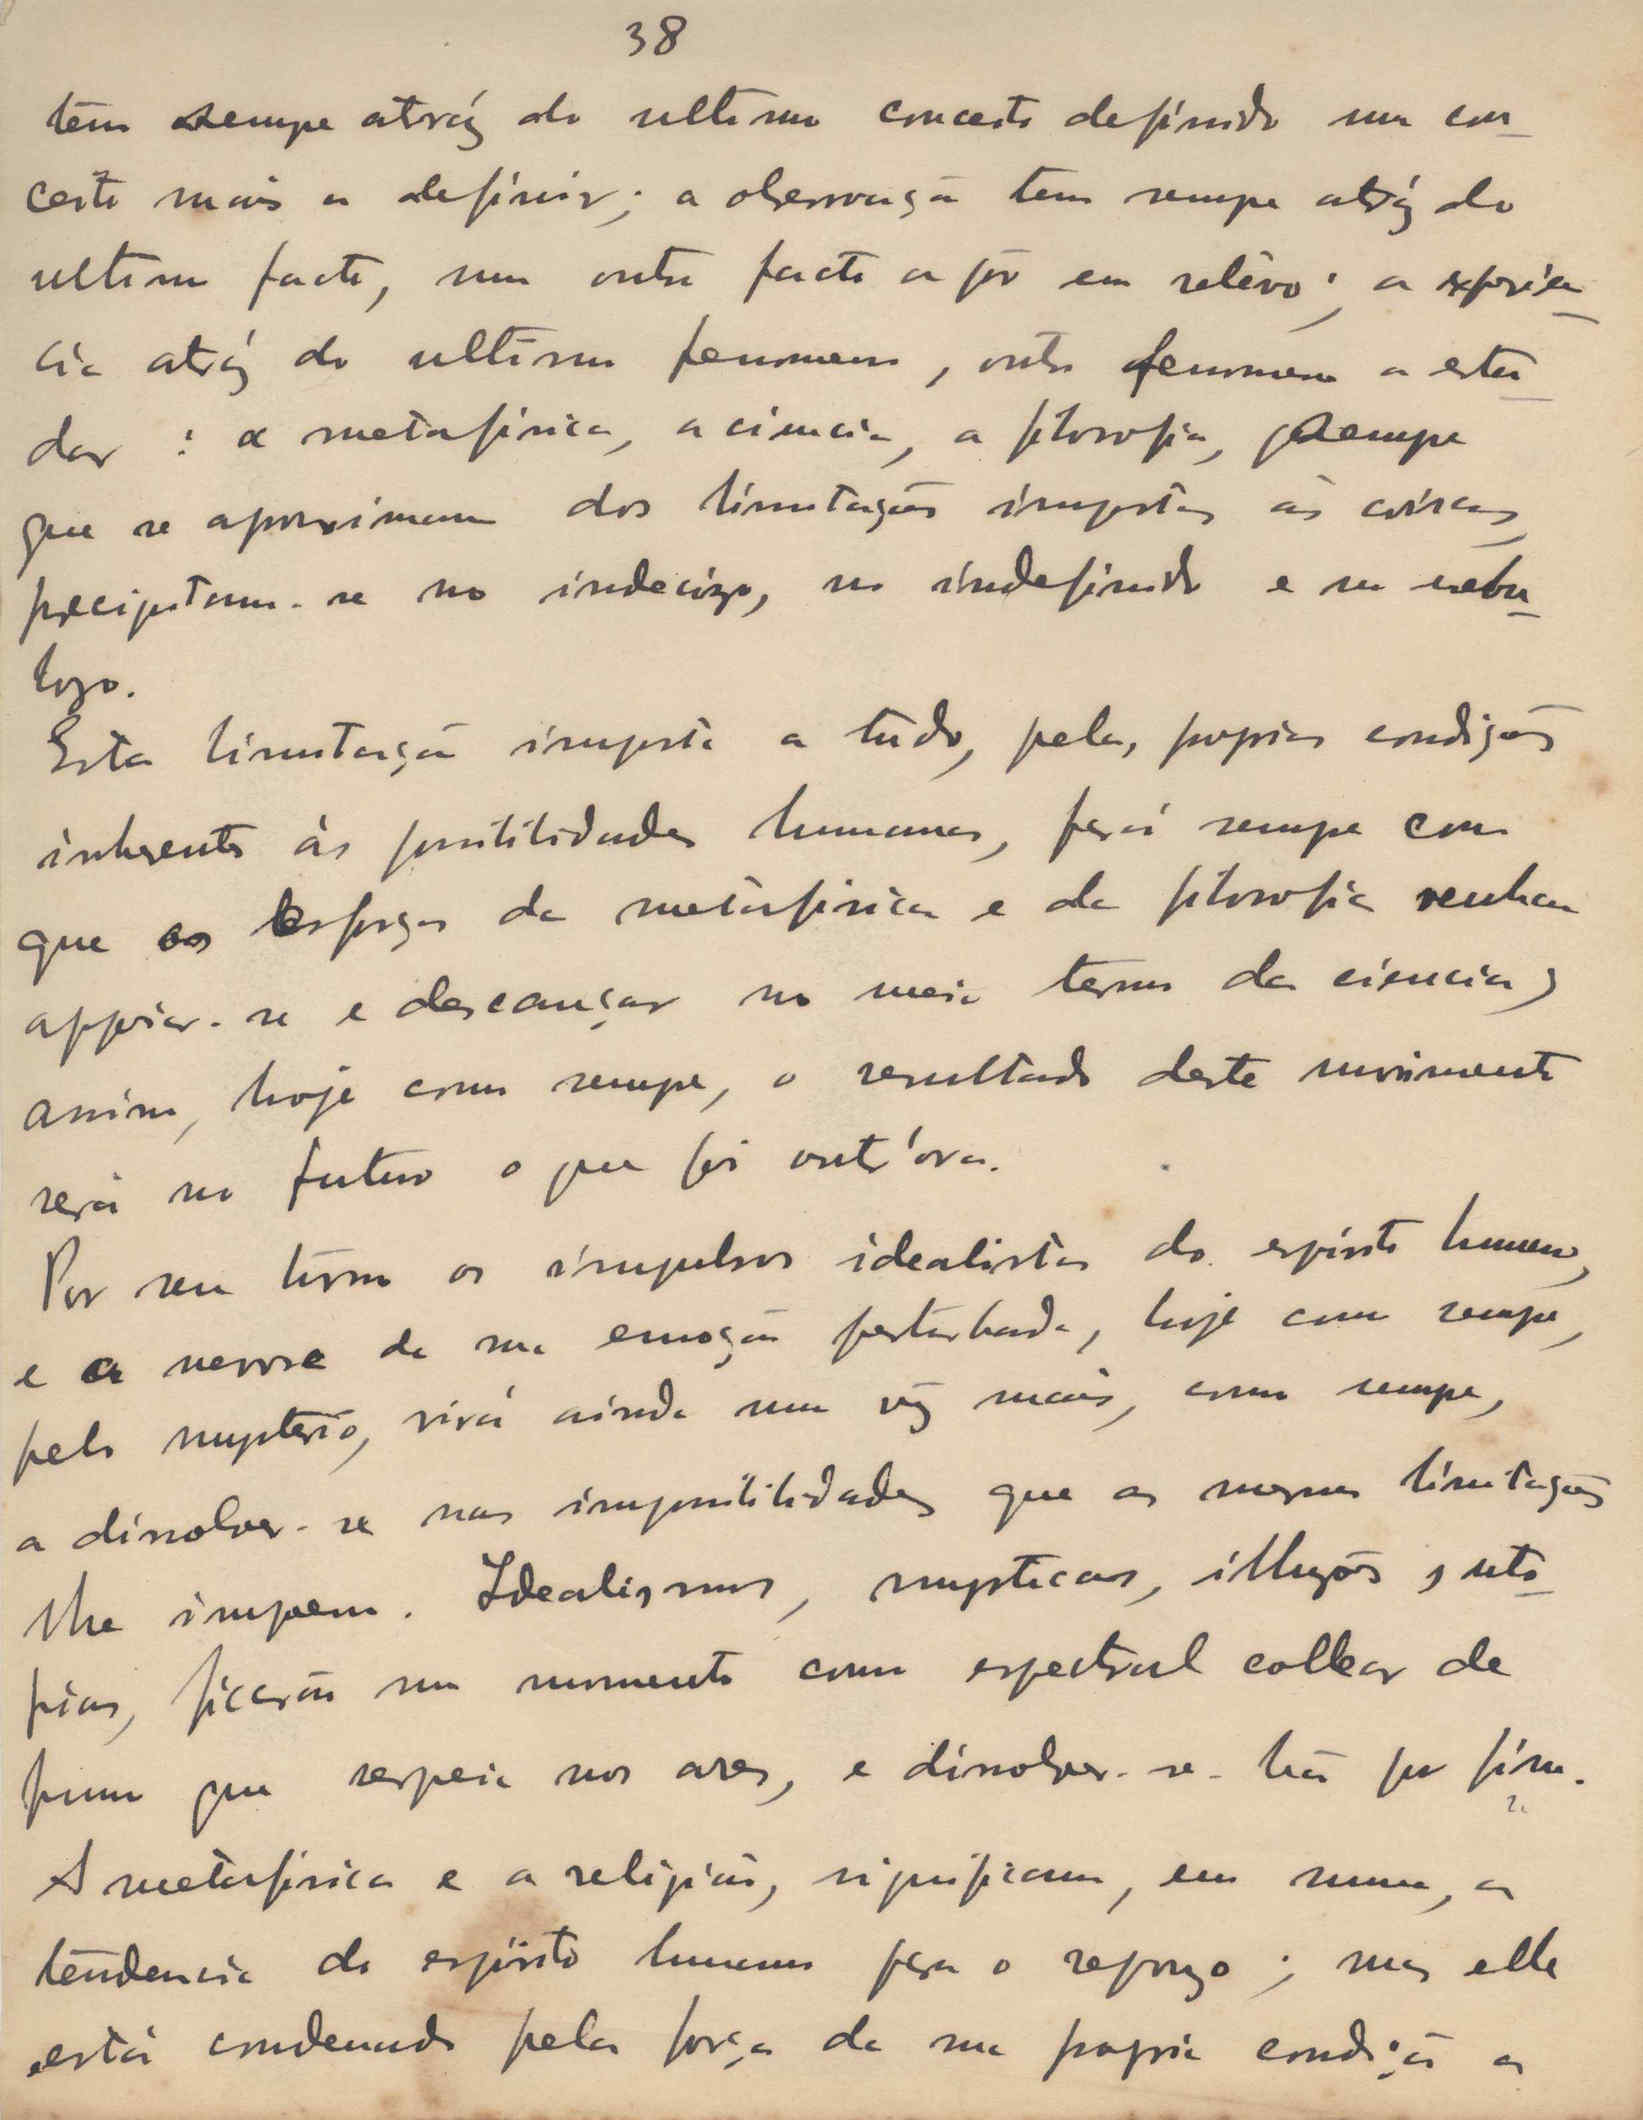 38
tem sempre atráz do ultimo conceito definido um con-
ceito mais a definir; a observação tem sempre atráz do
ultimo facto, um outro facto a pôr em relêvo; a experiên-
cia atráz do ultimo fenomeno, outro fenomeno a estu-
dar: a metafisica, a ciencia, a filosofia, sempre
que se aproximam das limitações impostas ás coisas,
precipitam-se no indecizo, no indefinido e no nebu-
lozo.
Esta limitação imposta a tudo, pelas proprias condições
inherentes ás possibilidades humanas, fará sempre com
que os esforços da metafisica e da filosofia venham
appoiar-se e descançar no meio termo da ciencia;
assim, hoje como sempre, o resultado deste movimento
será no futuro o que foi outr'ora.
Por seu turno os impulsos idealistas do espirito humano,
e a nevrose da sua emoção perturbada, hoje como sempre,
pelo mysterio, virá ainda uma vêz mais, como sempre,
a dissolver-se nas impossibilidades que as mesmas limitações
lhe impõem. Idealismos, mysticas, illuzões, uto-
pias, ficarão um momento como espectral collear de
fumo que serpeia nos ares, e dissolver-se-hão por fim.
A metafisica e a religião, significam, em suma, a
tendencia do espirito humano para o repouzo; mas elle
está condemnado pela força da sua propria condição a